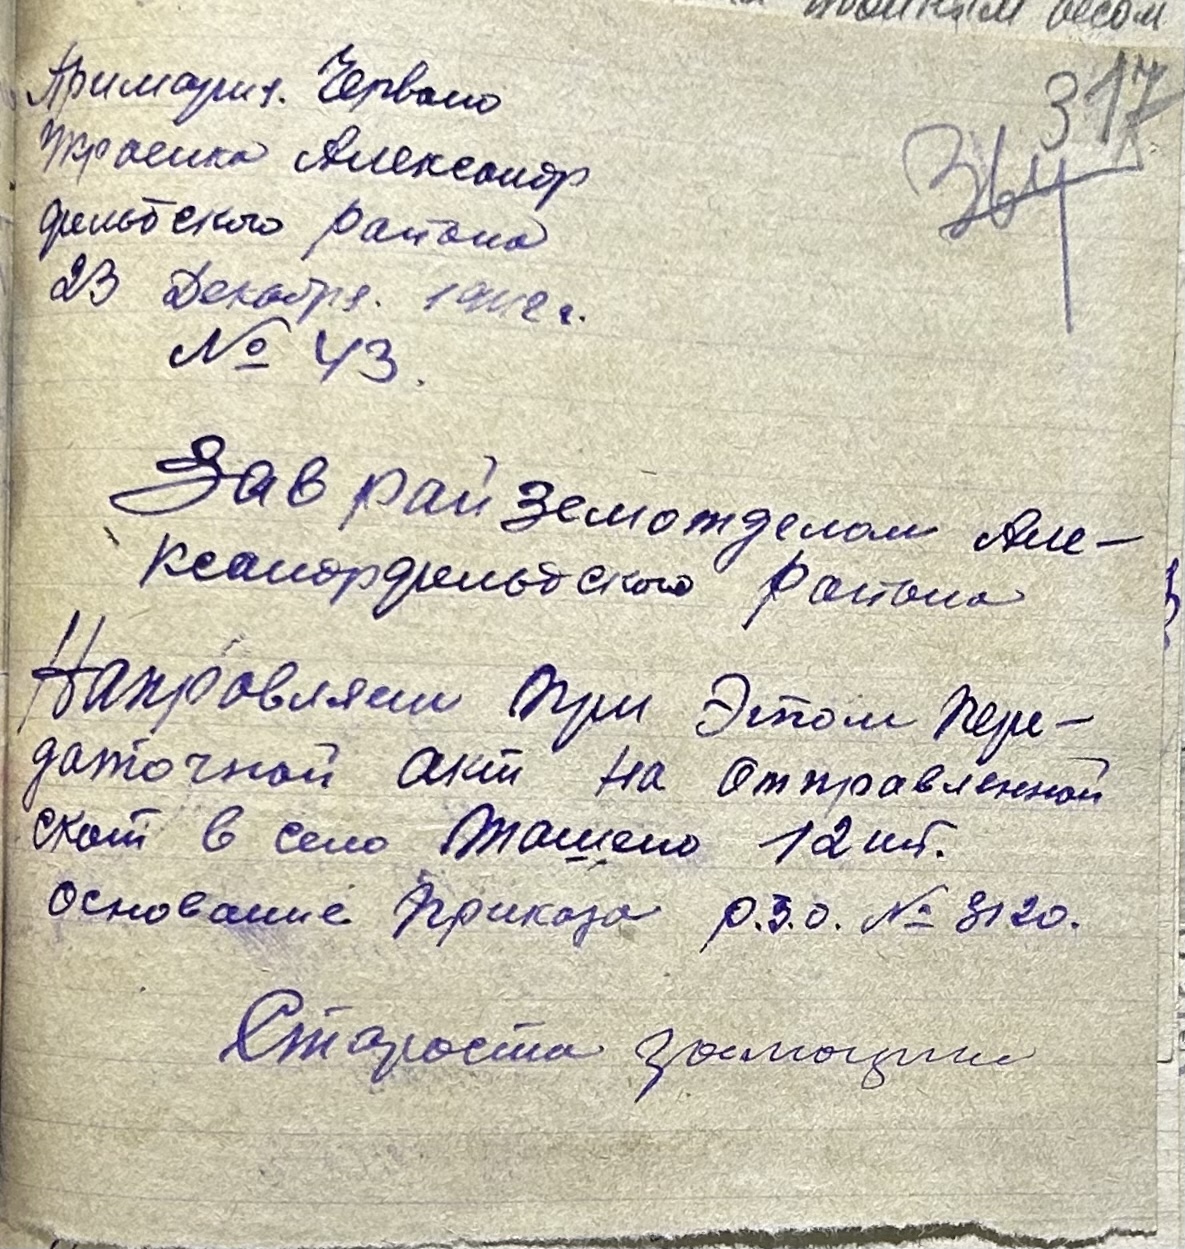 весом
317
364
Примария. Червоно
Украинка Александр
дфельдского района
23 Декабря. 1942 г.
№ 43.
Зав райземотделом Але-
ксандрфельдского района
Направляем При Этом Пере-
даточной акт на отправленной
скот в село Ташено 12 шт.
основание Приказа р.з.о. № 3120.
Староста